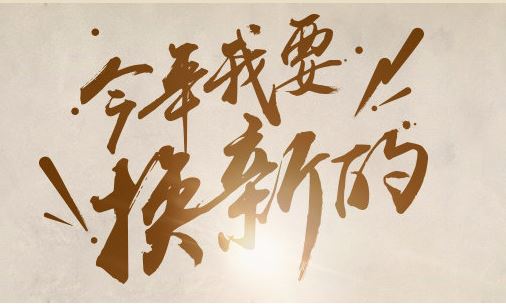 今年我要
换新的